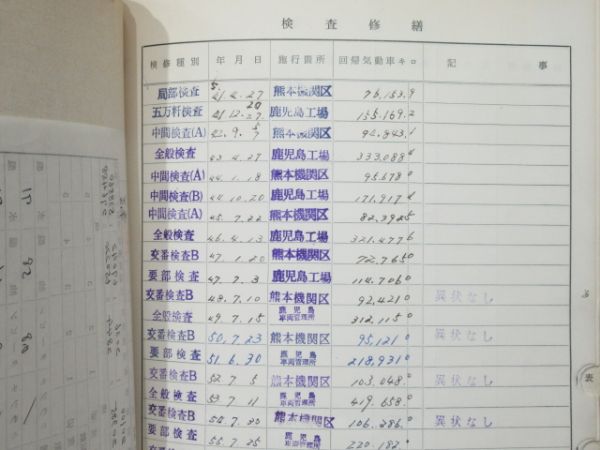 検査修繕
検修種別 年月日 施行箇所 回帰気動車キロ 記事
局部検査 41.2.27 熊本機関区 76,153.9
五万粁検査 41.12.27 20 鹿児島工場 155.169.2
中間検査(A) 42.9.5 熊本機関区 94.843.1
全般検査 43.4.27 鹿児島工場 333.088
中間検査(A) 44.1.18 熊本機関区 95.678 0
中間検査(B) 44.10.20 鹿児島工場 171.917
中間検査(A) 45.7.22 熊本機関区 82.392
全般検査 46.4.13 鹿児島工場 321.477
交番検査B 47.1.20 熊本機関区 72.765 0
要部検査 47.7.3 鹿児島工場 114.706 0
交番検査B 48.7.10 熊本機関区 92,421 0 異状なし
全般検査 49.7.15 鹿児島車両管理所 312,115 0
交番検査B 50.7.23 熊本機関区 95,121 0 異状なし
要部検査 51.6.30 鹿児島車両管理所 218,931 0
交番検査B 52.7.5 熊本機関区 103,048 0 異状なし
全般検査 53.7.11 鹿児島車両管理所 419,658 0
交番検査B 54.7.20 熊本機関区 106.286 0 異状なし
要部検査 55.7.25 鹿児島車両管理所 220.182 0
交番検査B
表